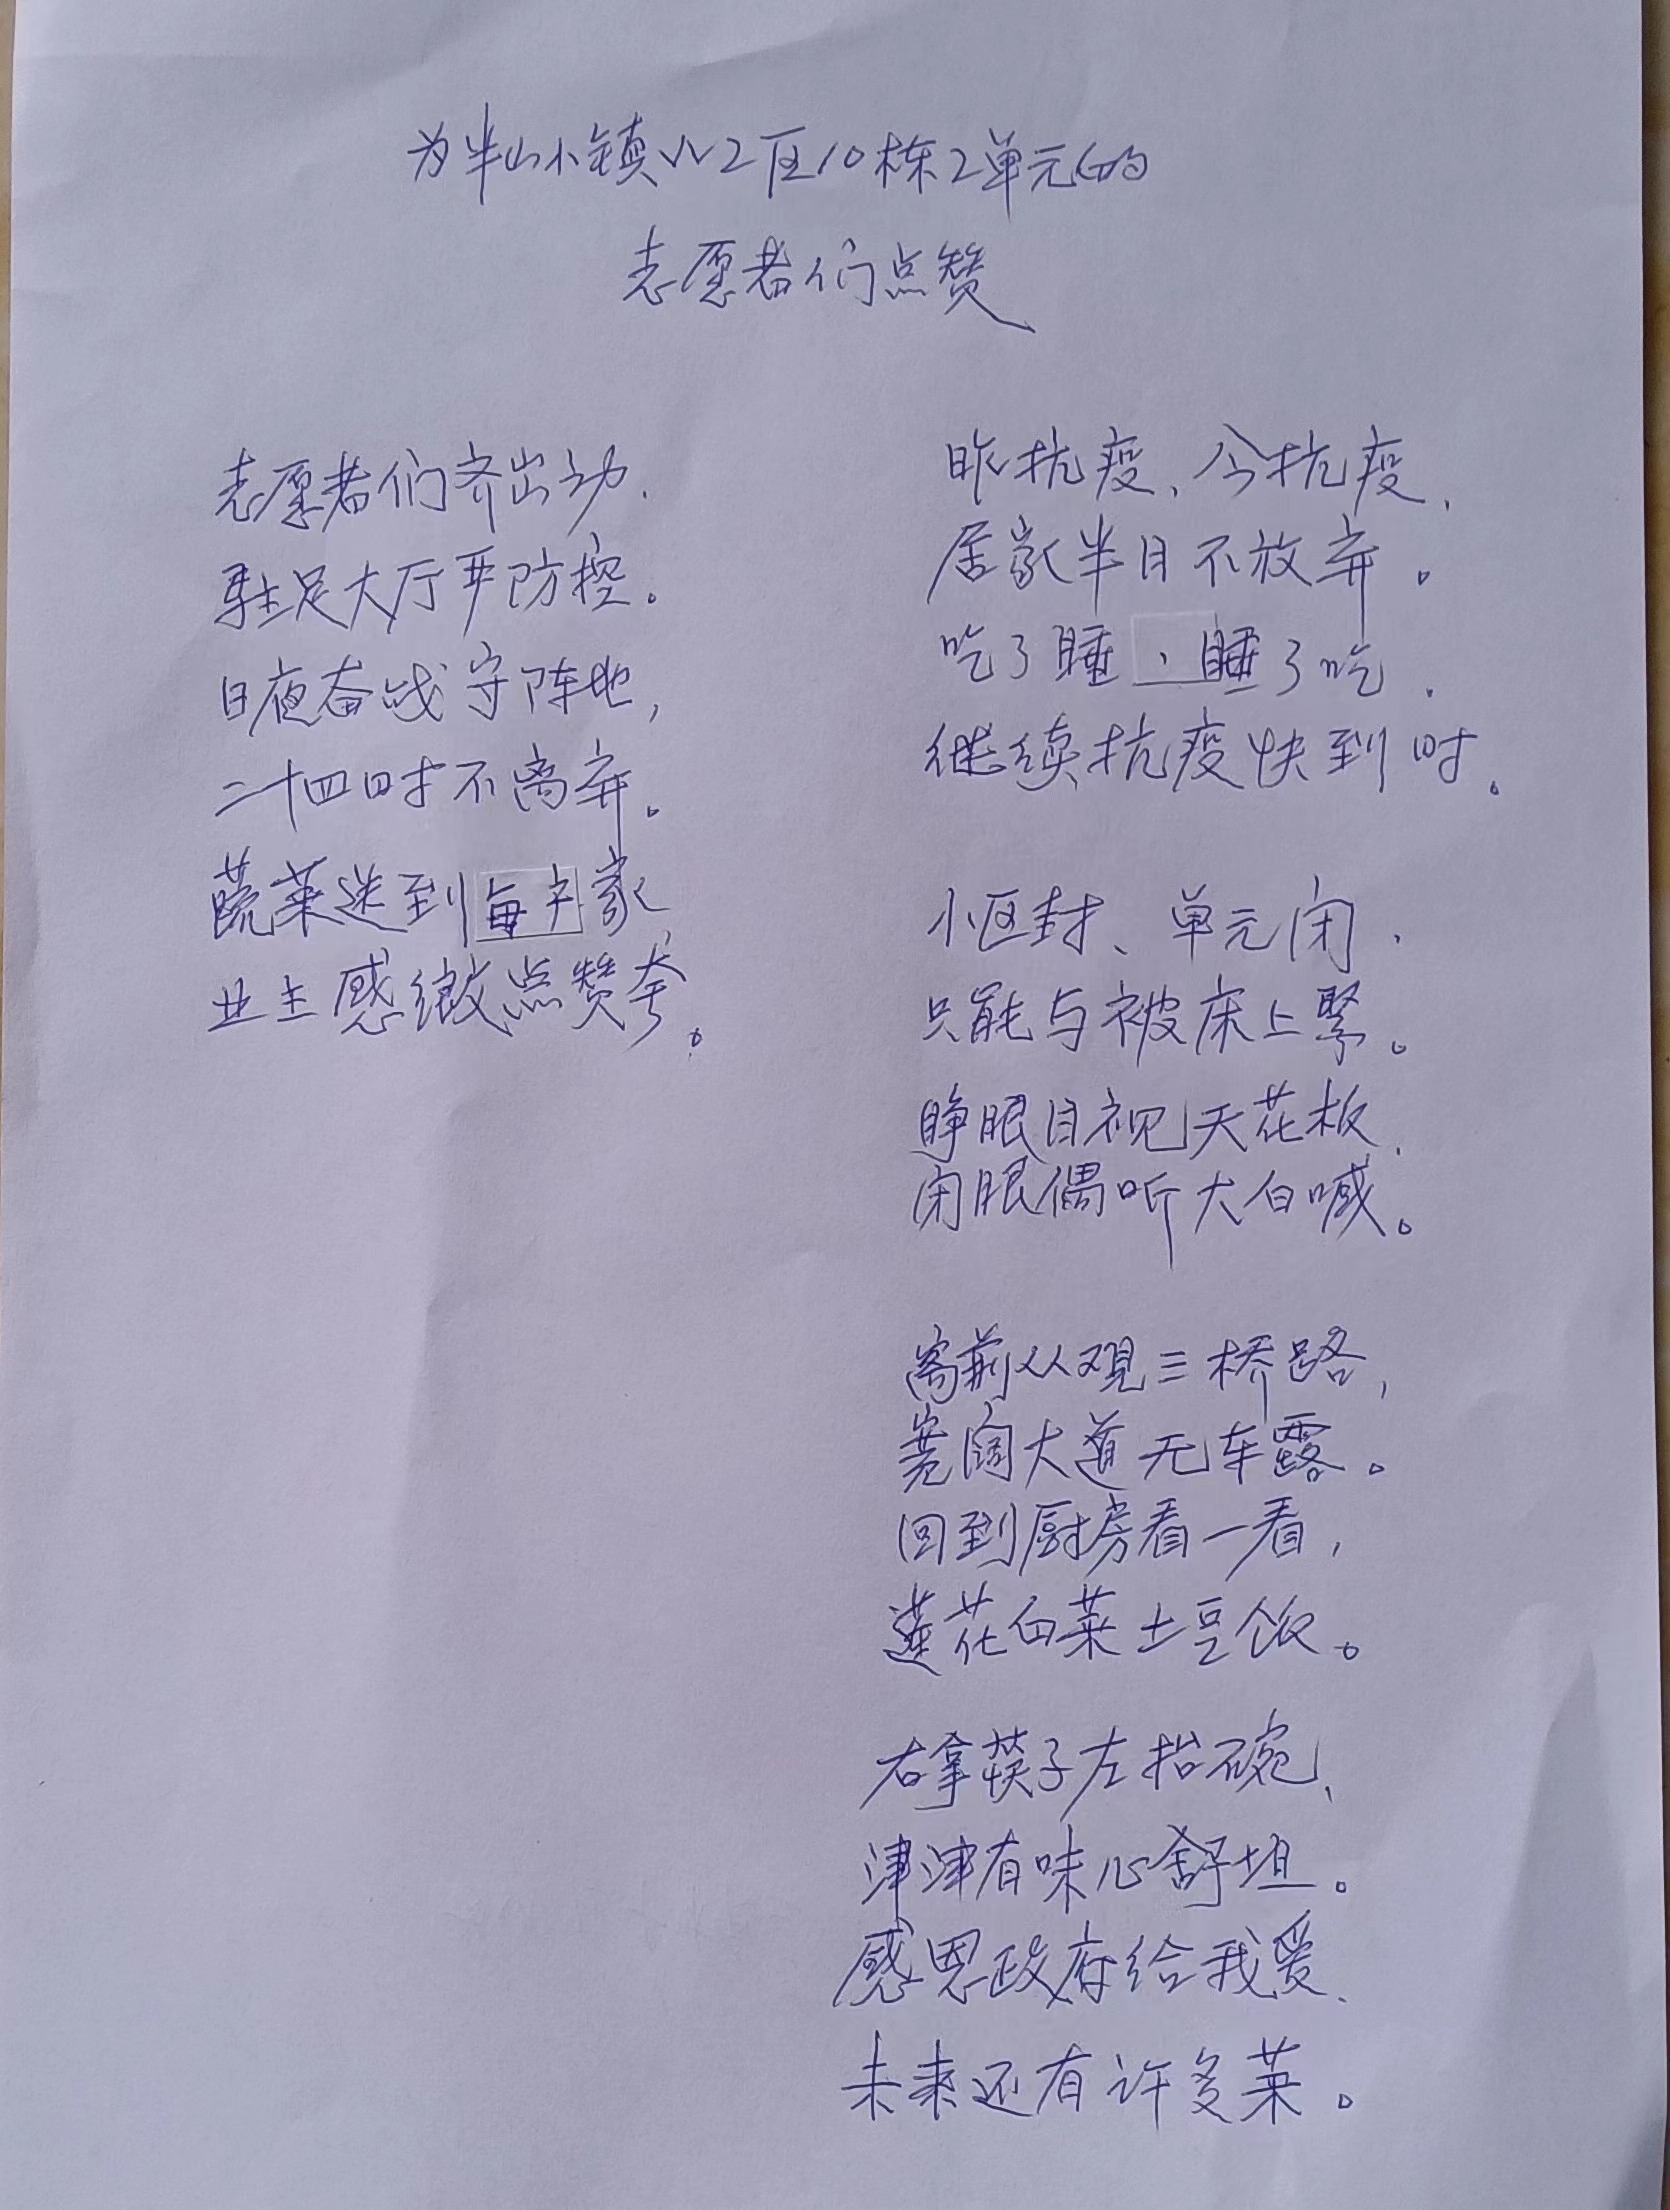 为半山小镇小2区10栋2单元的
志愿者们点赞
志愿者们齐出动、
驻足大厅严防控。
日夜奋战守阵地,
二十四时不离弃。
蔬菜送到每户家、
业主感激点赞夸。
昨抗疫、今抗疫、
居家半日不放弃。
吃了睡、睡了吃、
继续抗疫快到时。
小区封、单元闭、
只能与被床上紧。
睁眼目视天花板、
闭眼偶听大白喊。
窗前从观三桥路,
宽阔大道无车露。
回到厨房看一看,
莲花白菜土豆饭。
右拿筷子左抬碗、
津津有味心舒坦。
感恩政府给我爱、
未来还有许多菜。